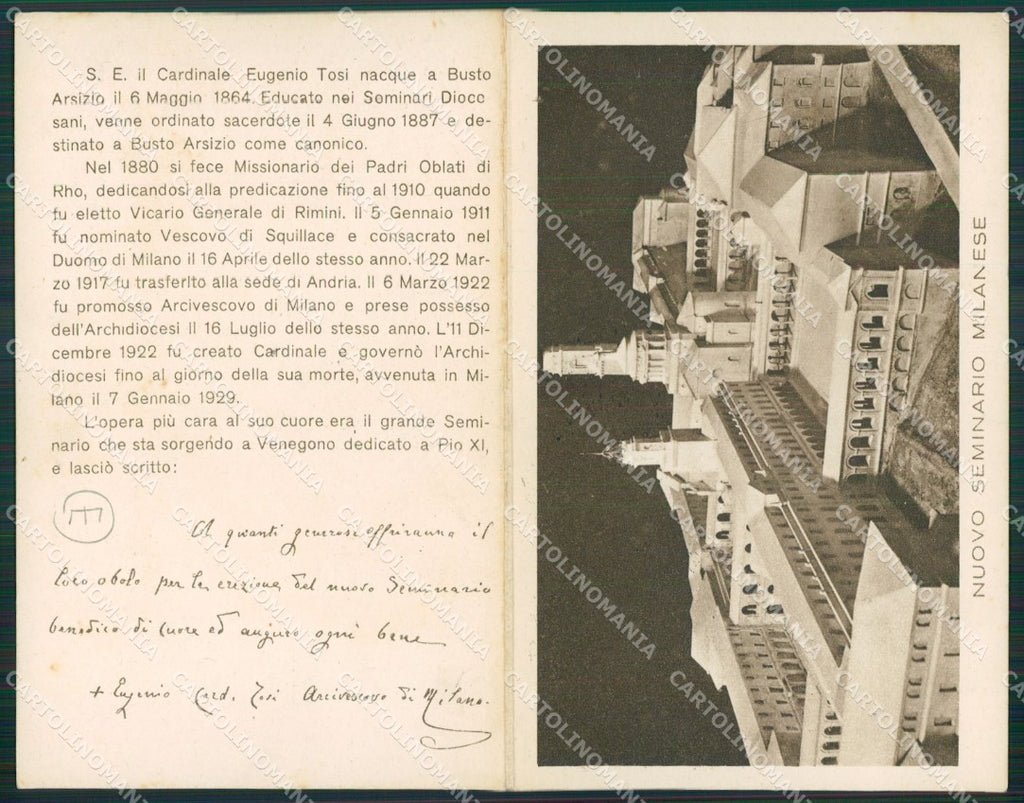 S. E. il Cardinale Eugenio Tosi nacque a Busto
Arsizio il 6 Maggio 1864. Educato nei Seminari Dioce
sani, venne ordinato sacerdote il 4 Giugno 1887 e de-
stinato a Busto Arsizio come canonico.
Nel 1880 si fece Missionario dei Padri Oblati di
Rho, dedicandosi alla predicazione fino al 1910 quando
fu eletto Vicario Generale di Rimini. Il 5 Gennaio 1911
fu nominato Vescovo di Squillace e consacrato nel
Duomo di Milano il 16 Aprile dello stesso anno. Il 22 Mar-
zo 1917 fu trasferito alla sede di Andria. Il 6 Marzo 1922
fu promosso Arcivescovo di Milano e prese possesso
dell'Archidiocesi Il 16 Luglio dello stesso anno. L'11 Di-
cembre 1922 fu creato Cardinale e governò l'Archi-
diocesi fino al giorno della sua morte, avvenuta in Mi-
lano il 7 Gennaio 1929.
L'opera più cara al suo cuore era il grande Semi-
nario che sta sorgendo a Venegono dedicato a Pio XI,
e lasciò scritto:
A quanti generosi offriranno il
loro obolo per la erezione del nuovo Seminario
benedico di cuore ed auguro ogni bene
+ Eugenio Card. Tosi Arcivescovo di Milano.
NUOVO SEMINARIO MILANESE
CARTOLINOMANIA